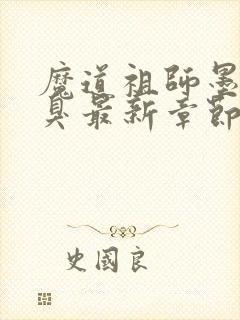 魔道祖師墨
臭最新章節
史國良